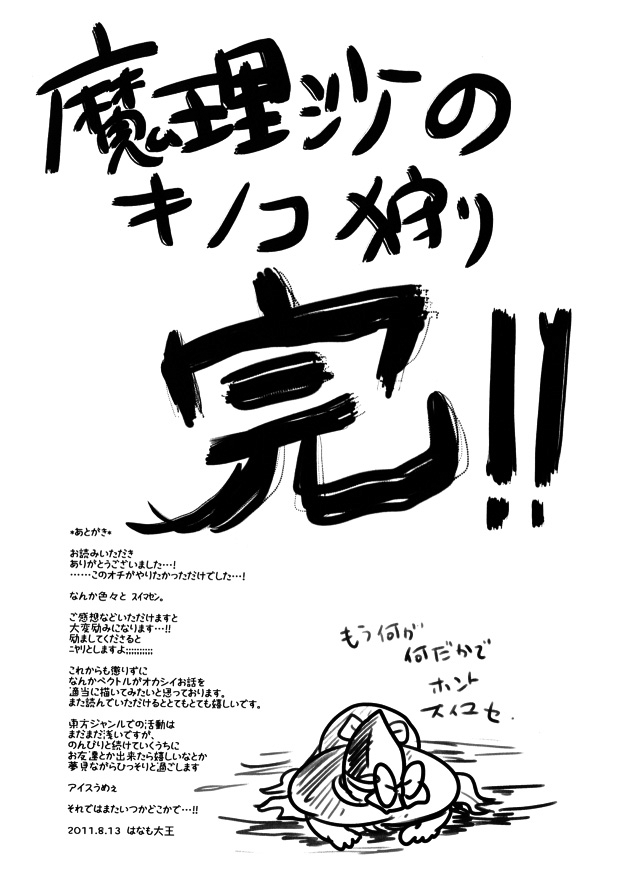 魔理沙ーの
キノコ狩り
完!!
*あとがき*
お読みいただき
ありがとうございました…!
……このオチがやりたかっただけでした…!
なんか色々と スイマセン。
ご感想などいただけますと
大変励みになります…!!
励ましてくださると
ニヤリとしますよ;;;;;;;;;;
これからも懲りずに
なんかベクトルがオカシイお話を
適当に描いてみたいと思っております。
また読んでいただけるととてもとても嬉しいです。
東方ジャンルでの活動は
まだまだ浅いですが、
のんびりと続けていくうちに
お友達とか出来たら嬉しいなとか
夢見ながらひっそりと過ごします
アイスうめぇ
それではまたいつかどこかで…!!
2011.8.13 はなも大王
もう何が
何だかで
ホント
スイマセ.